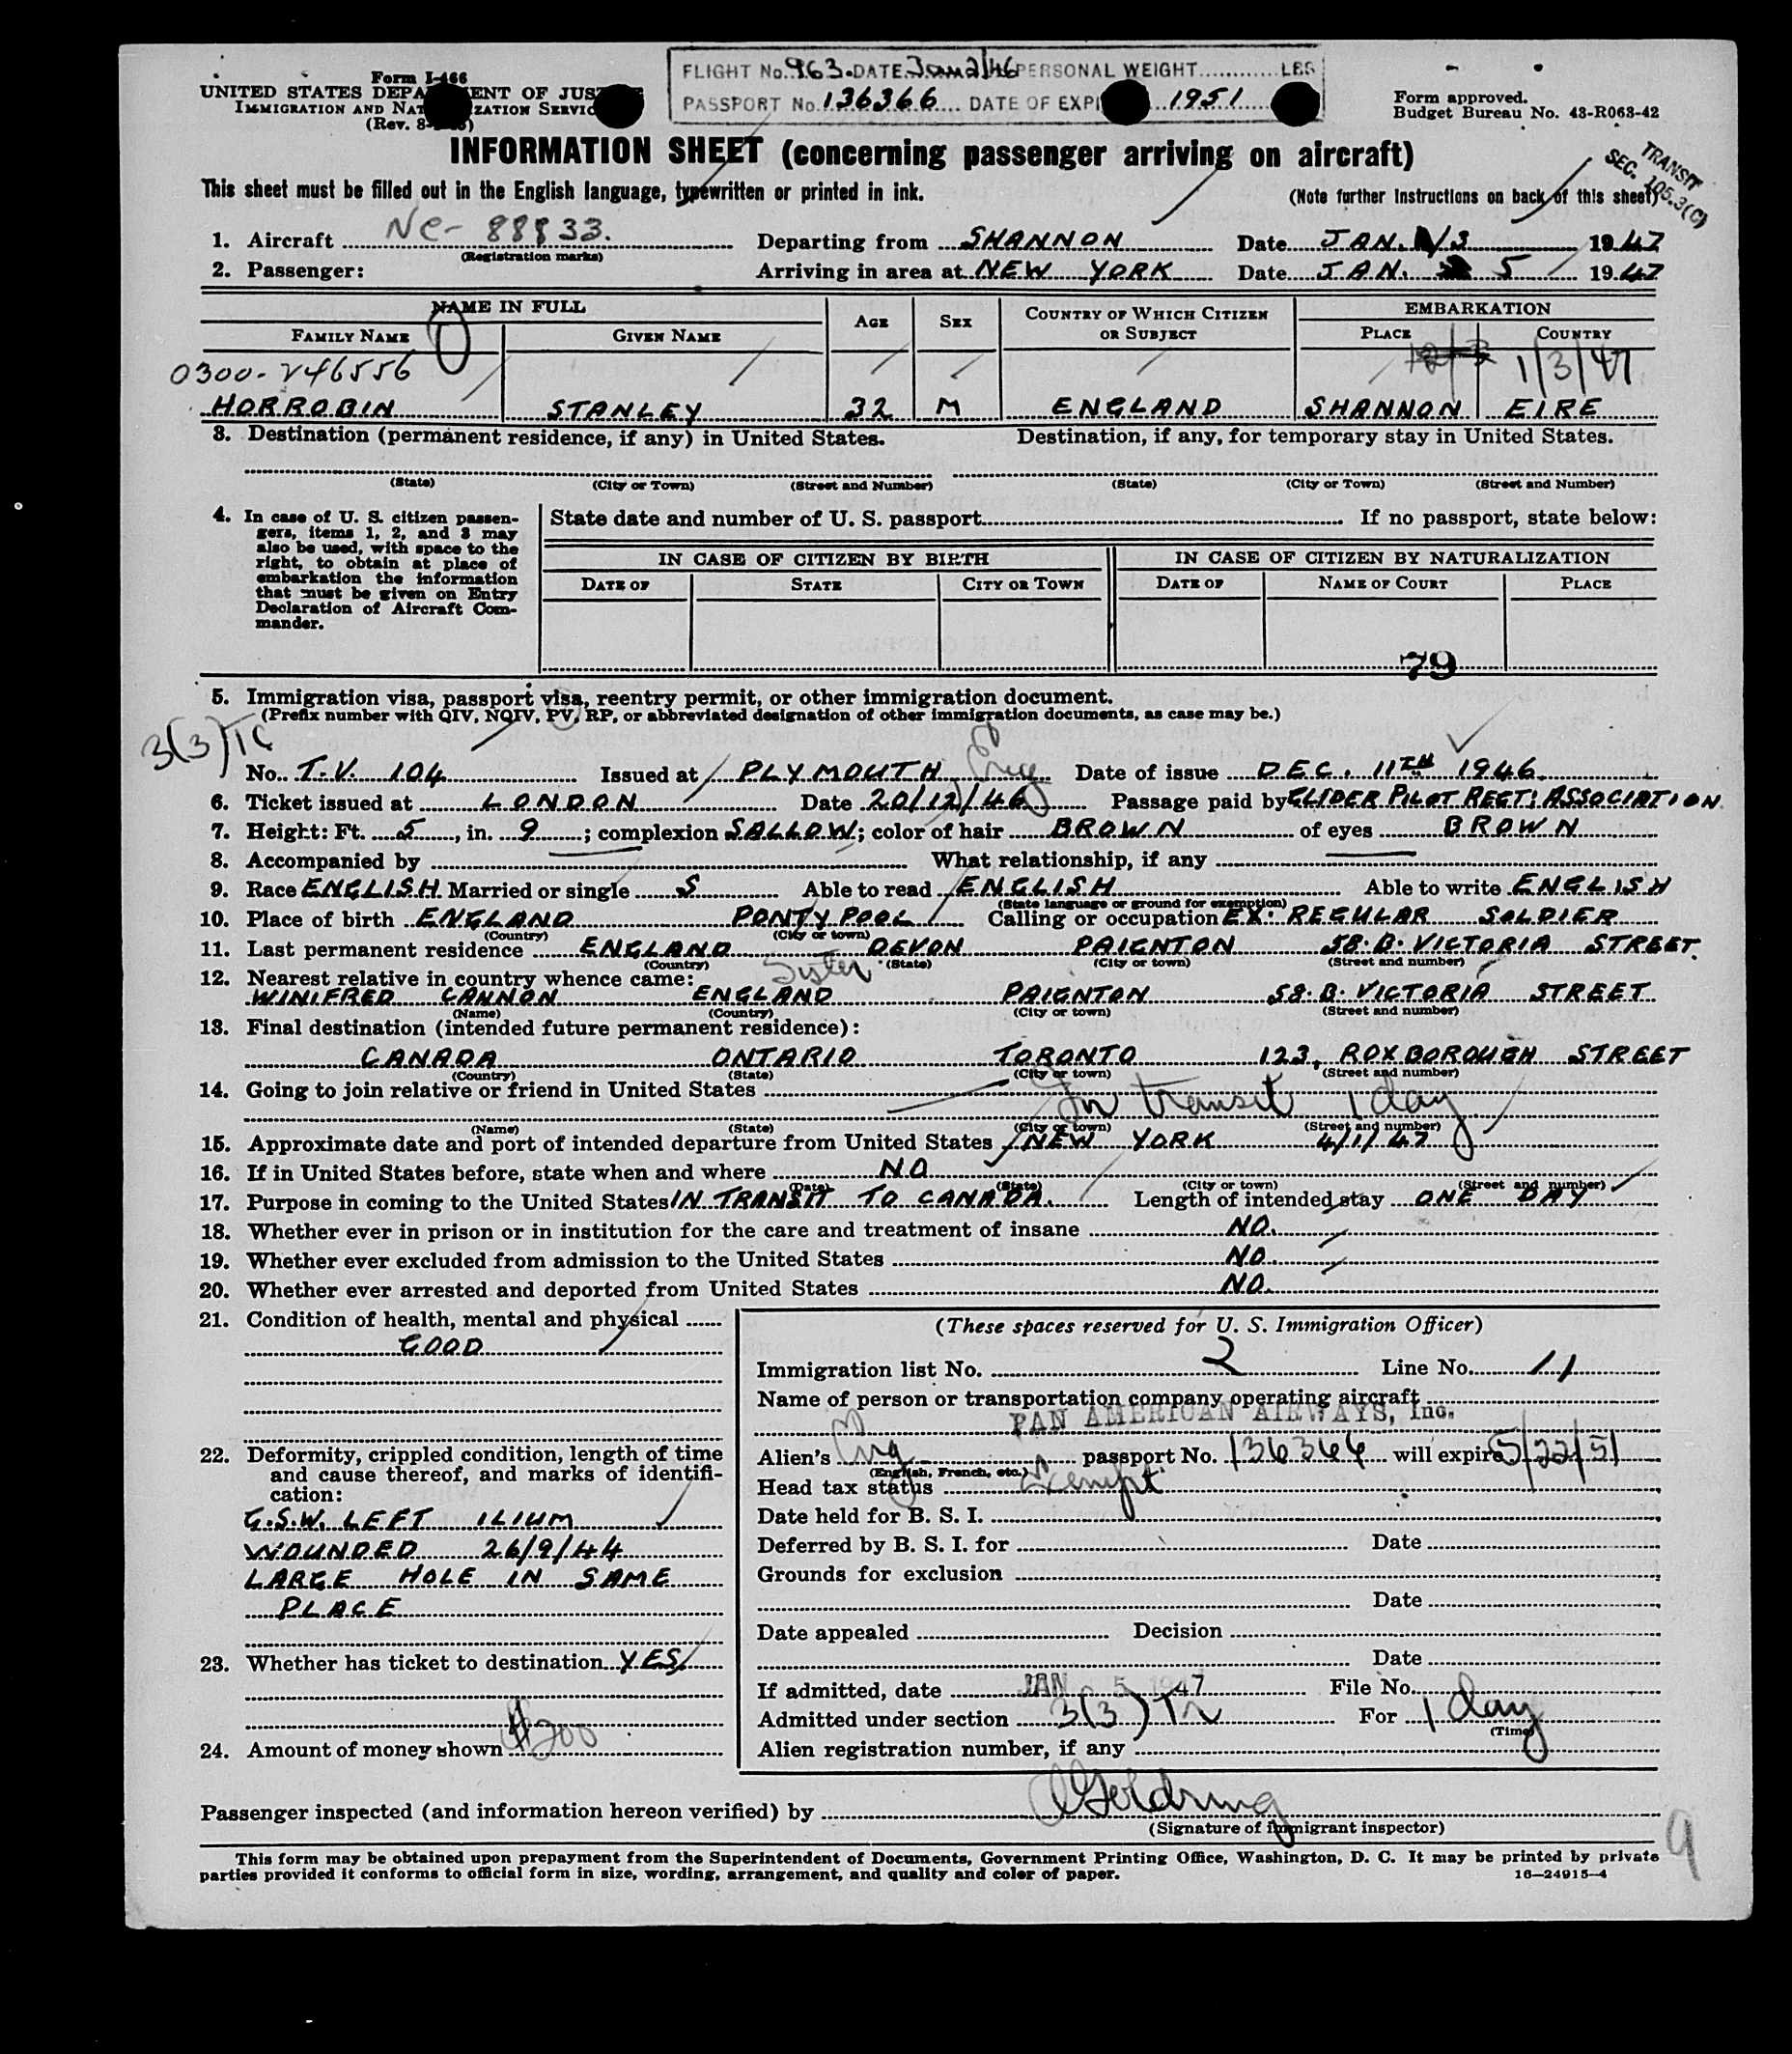 FLIGHT No. 963. DATE Jan 2/46 PERSONAL WEIGHT............LBS
PASSPORT No. 136366 DATE OF EXPI 1951
Form I-466
UNITED STATES DEPA ENT OF JUS
IMMIGRATION AND NAT ZATION SERVIC
(Rev. 8-
Form approved.
Budget Bureau No. 43-R063-42
INFORMATION SHEET (concerning passenger arriving on aircraft)
This sheet must be filled out in the English language, typewritten or printed in ink. (Note further instructions on back of this sheet)
TRANSIT
SEC. 105.3(C)
1. Aircraft NC- 88833. Departing from SHANNON Date JAN. 3 1947
(Registration marks)
2. Passenger: Arriving in area at NEW YORK Date JAN. 5 1947
NAME IN FULL AGE SEX COUNTRY OF WHICH CITIZEN OR SUBJECT EMBARKATION
FAMILY NAME GIVEN NAME PLACE COUNTRY
0300-246556 1/3/47
HORROBIN STANLEY 32 M ENGLAND SHANNON EIRE
3. Destination (permanent residence, if any) in United States. Destination, if any, for temporary stay in United States.
(State) (City or Town) (Street and Number) (State) (City or Town) (Street and Number)
4. In case of U. S. citizen passen-
gers, items 1, 2, and 3 may
also be used, with space to the
right, to obtain at place of
embarkation the information
that must be given on Entry
Declaration of Aircraft Com-
mander.
State date and number of U. S. passport If no passport, state below:
IN CASE OF CITIZEN BY BIRTH IN CASE OF CITIZEN BY NATURALIZATION
DATE OF STATE CITY OR TOWN DATE OF NAME OF COURT PLACE
79
5. Immigration visa, passport visa, reentry permit, or other immigration document.
(Prefix number with QIV, NQIV, PV, RP, or abbreviated designation of other immigration documents, as case may be.)
3(3)TC
No. T.V. 104 Issued at PLYMOUTH Eng Date of issue DEC. 11TH 1946
6. Ticket issued at LONDON Date 20/12/46 Passage paid by GLIDER PILOT REGT: ASSOCIATION
7. Height: Ft. 5, in. 9; complexion SALLOW; color of hair BROWN of eyes BROWN
8. Accompanied by What relationship, if any
9. Race ENGLISH Married or single S Able to read ENGLISH Able to write ENGLISH
(State language or ground for exemption)
10. Place of birth ENGLAND PONTYPOOL Calling or occupation EX: REGULAR SOLDIER
(Country) (City or town)
11. Last permanent residence ENGLAND DEVON PAIGNTON 58.B. VICTORIA STREET.
(Country) (State) (City or town) (Street and number)
12. Nearest relative in country whence came: Sister
WINIFRED CANNON ENGLAND PAIGNTON 58.B. VICTORIA STREET
(Name) (Country) (City or town) (Street and number)
13. Final destination (intended future permanent residence):
CANADA ONTARIO TORONTO 123, ROXBOROUGH STREET
(Country) (State) (City or town) (Street and number)
14. Going to join relative or friend in United States
In transit 1 day
(Name) (State) (City or town) (Street and number)
15. Approximate date and port of intended departure from United States NEW YORK 4/1/47
16. If in United States before, state when and where NO
(Date) (State) (City or town) (Street and number)
17. Purpose in coming to the United States IN TRANSIT TO CANADA. Length of intended stay ONE DAY
18. Whether ever in prison or in institution for the care and treatment of insane NO.
19. Whether ever excluded from admission to the United States NO.
20. Whether ever arrested and deported from United States NO.
21. Condition of health, mental and physical
GOOD
22. Deformity, crippled condition, length of time
and cause thereof, and marks of identifi-
cation:
G.S.W. LEFT ILIUM
WOUNDED 26/9/44
LARGE HOLE IN SAME
PLACE
23. Whether has ticket to destination YES
24. Amount of money shown $200
(These spaces reserved for U. S. Immigration Officer)
Immigration list No. 2 Line No. 11
Name of person or transportation company operating aircraft
PAN AMERICAN AIRWAYS, Inc.
Alien's Eng passport No. 136366 will expire 5/22/51
(English, French, etc.)
Head tax status Exempt
Date held for B. S. I.
Deferred by B. S. I. for Date
Grounds for exclusion
Date
Date appealed Decision
Date
If admitted, date JAN 5 1947 File No.
Admitted under section 3(3) For 1 day
(Time)
Alien registration number, if any
Passenger inspected (and information hereon verified) by
(Signature of immigrant inspector)
9
This form may be obtained upon prepayment from the Superintendent of Documents, Government Printing Office, Washington, D. C. It may be printed by private
parties provided it conforms to official form in size, wording, arrangement, and quality and color of paper. 16—24915-4